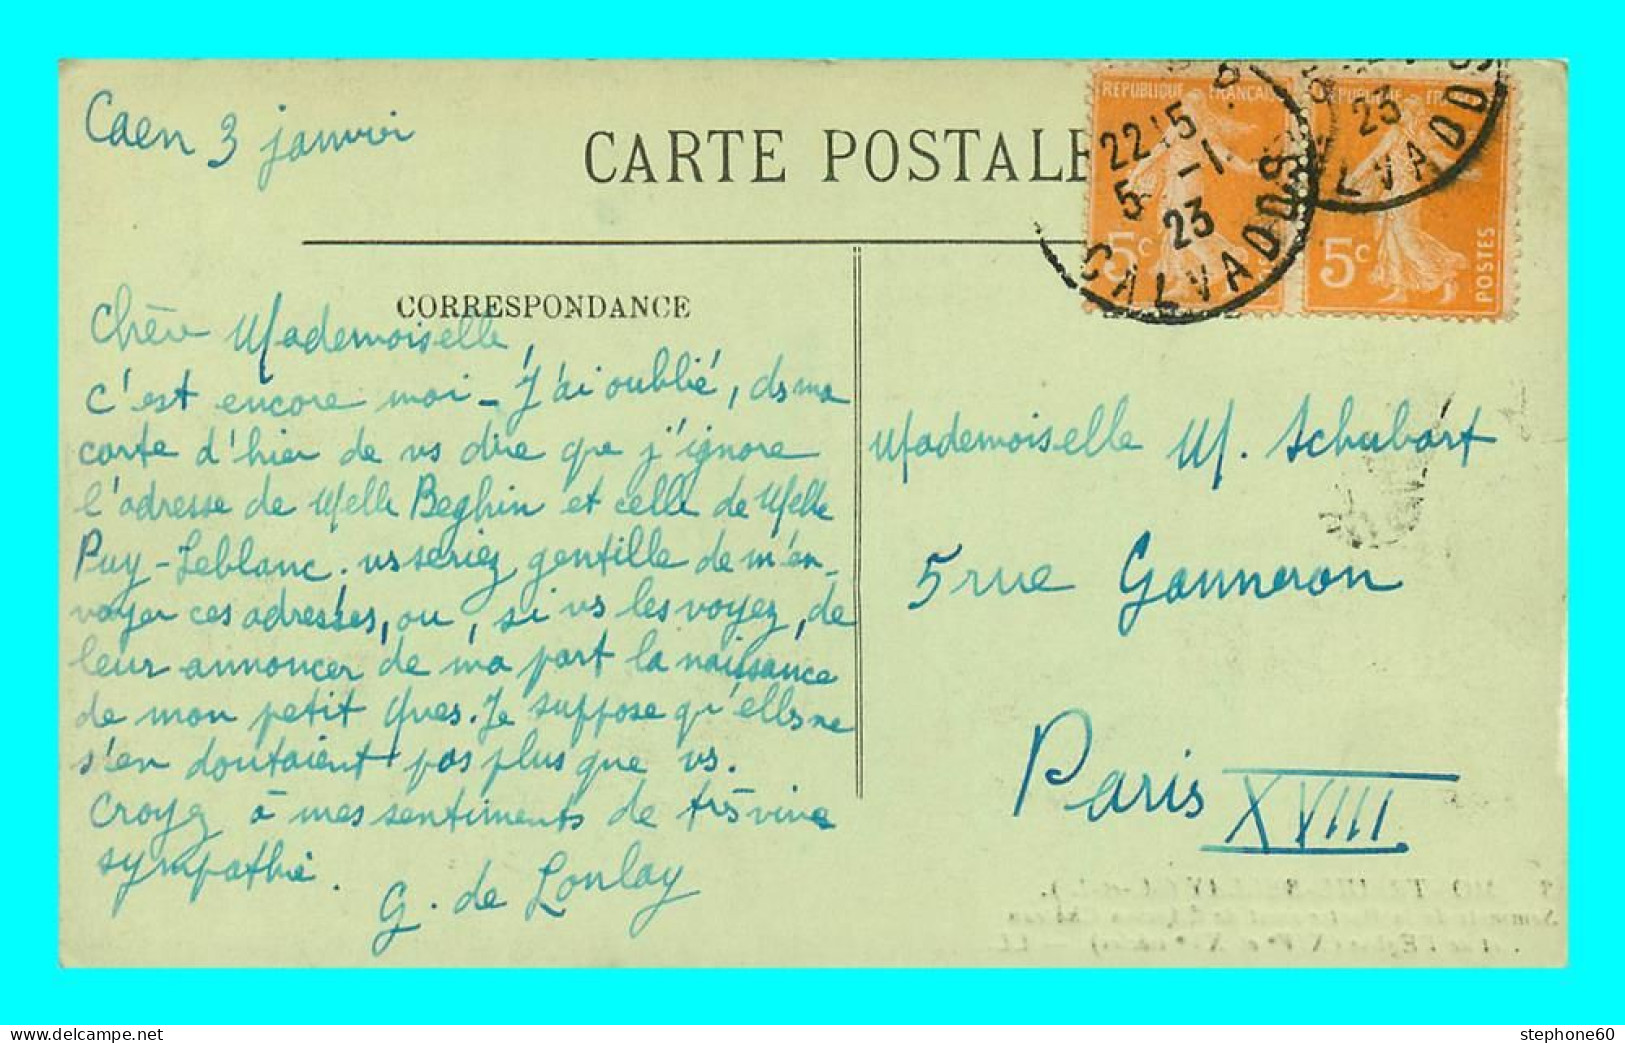 Caen 3 janvier
CARTE POSTALE
REPUBLIQUE FRANCAISE
5c
22 15
5 - 1
23
CALVADOS
REPUBLIQUE FRA
5c
POSTES
23
LVADO
CORRESPONDANCE
Chère Mademoiselle,
c'est encore moi - J'ai oublié, ds ma
carte d'hier de vs dire que j'ignore
l'adresse de Melle Beghin et celle de Melle
Puy-Leblanc. vs seriez gentille de m'en-
voyer ces adresses, ou, si vs les voyez, de
leur annoncer de ma part la naissance
de mon petit Yves. Je suppose qu'elles ne
s'en doutaient pas plus que vs.
Croyez à mes sentiments de très vive
sympathie.
G. de Lonlay
Mademoiselle M. Schubart
5 rue Ganneron
Paris XVIII
delcampe.net
stephone60